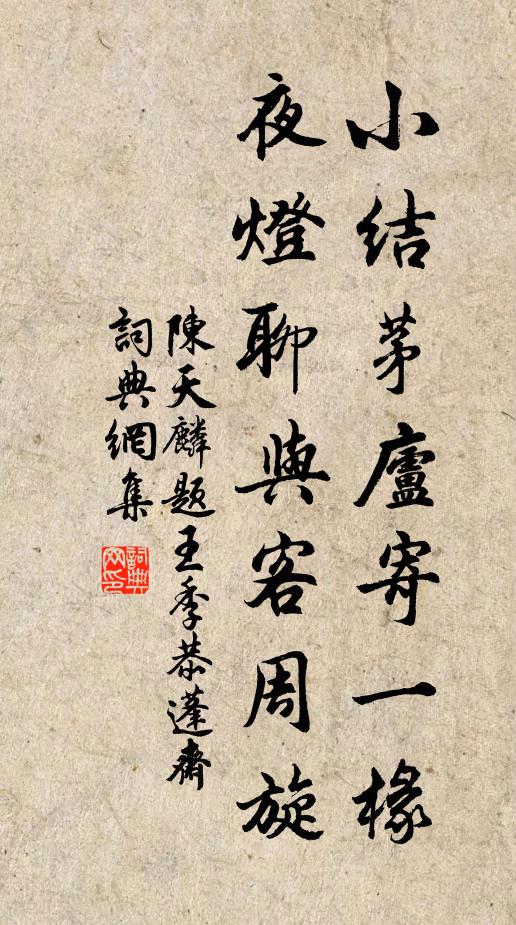 小結茅廬寄一椽
夜燈聊與客周旋
陳天麟題王季恭蓬齋
詞典網集
詞典網印